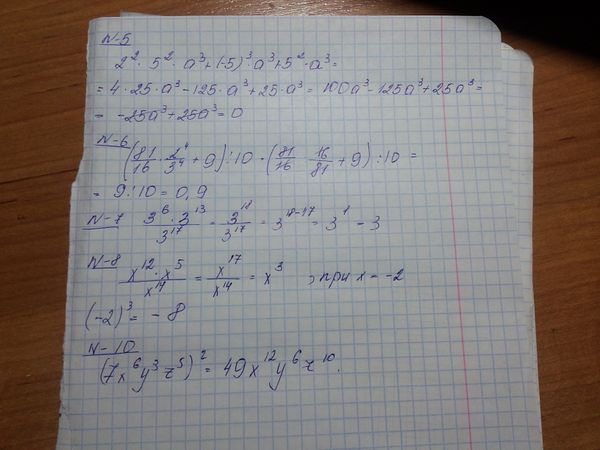 N-5
2² · 5² · a³ + (-5)³ · a³ + 5² · a³ =
= 4 · 25 · a³ - 125 · a³ + 25 · a³ = 100a³ - 125a³ + 25a³ =
= -25a³ + 25a³ = 0
N-6
(81/16 · 2⁴/3⁴ + 9) : 10 = (81/16 · 16/81 + 9) : 10 =
= 9 : 10 = 0,9
N-7 3⁶ · 3¹³/3¹⁷ = 3¹⁸/3¹⁷ = 3¹⁸⁻¹⁷ = 3¹ = 3
N-8
x¹² · x⁵/x¹⁴ = x¹⁷/x¹⁴ = x³ , при x = -2
(-2)³ = - 8
N-10
(7x⁶y³z⁵)² = 49x¹²y⁶z¹⁰.